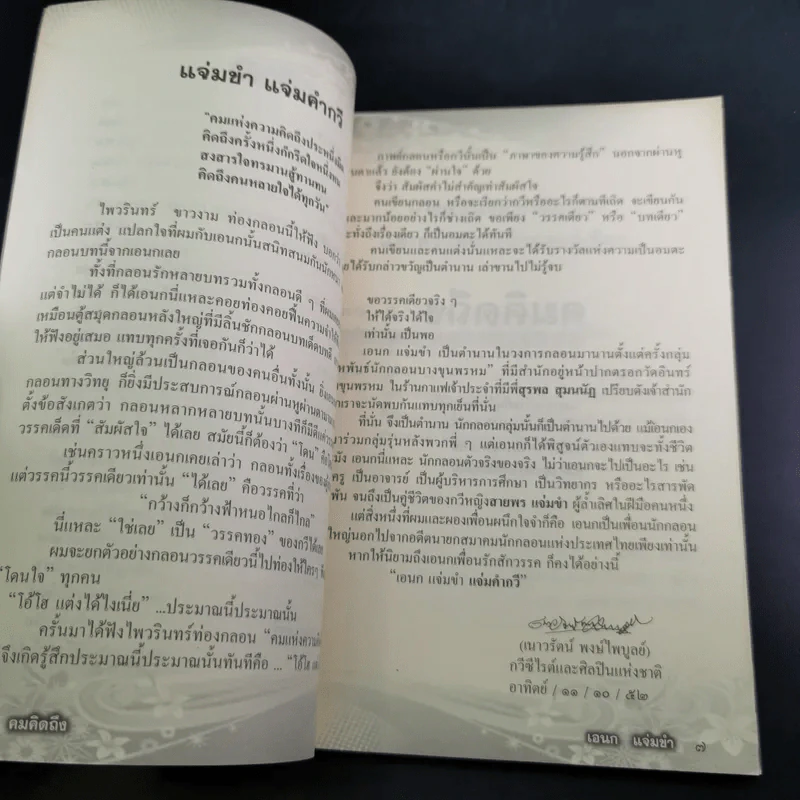 แจ่มขำ แจ่มคำกวี
"คมแห่งความคิดถึงประหนึ่งมีด
คิดถึงครั้งหนึ่งก็กรีดใจหนึ่งหน
สงสารใจทรมานสู้ทานทน
คิดถึงคนหลายใจได้ทุกวัน"
ไพวรินทร์ ขาวงาม ท่องกลอนนี้ให้ฟัง บอกว่า
เป็นคนแต่ง แปลกใจที่ผมกับเอนกนั้นสนิทสนมกันนักหนา
กลอนบทนี้จากเอนกเลย
ทั้งที่กลอนรักหลายบทรวมทั้งกลอนดี ๆ ที่ผม
แต่จำไม่ได้ ก็ได้เอนกนี่แหละคอยท่องคอยฟื้นความจำให้
เหมือนตู้สมุดกลอนหลังใหญ่ที่มีลิ้นชักกลอนบทเด็ดบทดี
ให้ฟังอยู่เสมอ แทบทุกครั้งที่เจอกันก็ว่าได้
ส่วนใหญ่ล้วนเป็นกลอนของคนอื่นทั้งนั้น
กลอนทางวิทยุ ก็ยิ่งมีประสบการณ์กลอนผ่านหูผ่านตามา
ตั้งข้อสังเกตว่า กลอนหลากหลายบทนั้นบางทีก็มีดีแค่
วรรคเด็ดที่ "สัมผัสใจ" ได้เลย สมัยนี้ก็ต้องว่า "โดน"
เช่นคราวหนึ่งเอนกเคยเล่าว่า กลอนทั้งเรื่องของ
แต่วรรคนี้วรรคเดียวเท่านั้น "ได้เลย" คือวรรคที่ว่า
"กว้างก็กว้างฟ้าหนอไกลก็ไกล"
นี่แหละ "ใช่เลย" เป็น "วรรคทอง" ของกวีได้เลย
ผมจะยกตัวอย่างกลอนวรรคเดียวนี้ไปท่องให้ใครๆ ฟัง
"โดนใจ" ทุกคน
"โอ้โฮ แต่งได้ไงเนี่ย" ...ประมาณนี้ประมาณนั้น
ครั้นมาได้ฟังไพวรินทร์ท่องกลอน "คมแห่งความคิด
จึงเกิดรู้สึกประมาณนี้ประมาณนั้นทันทีคือ ... "โอ้โฮ
คมคิดถึง
กาพย์กลอนหรือกวีนั้นเป็น "ภาษาของความรู้สึก" นอกจากผ่านหู
ตาแล้ว ยังต้อง "ผ่านใจ" ด้วย
จึงว่า สัมผัสคำไม่สำคัญเท่าสัมผัสใจ
คนเขียนกลอน หรือจะเรียกว่ากวีหรืออะไรก็ตามทีเถิด จะเขียนกัน
และมากน้อยอย่างไรก็ช่างเถิด ขอเพียง "วรรคเดียว" หรือ "บทเดียว"
ะทั่งถึงเรื่องเดียว ก็เป็นอมตะได้ทันที
คนเขียนและคนแต่งนั้นแหละจะได้รับรางวัลแห่งความเป็นอมตะ
ยได้รับกล่าวขวัญเป็นตำนาน เล่าขานไปไม่รู้จบ
ขอวรรคเดียวจริง ๆ
ให้ได้จริงได้ใจ
เท่านั้น เป็นพอ
เอนก แจ่มขำ เป็นตำนานในวงการกลอนมานานตั้งแต่ครั้งกลุ่ม
หพันธ์นักกลอนบางขุนพรหม" ที่มีสำนักอยู่หน้าปากตรอกวัดอินทร์
ขุนพรหม ในร้านกาแฟเจ้าประจำที่มีพี่สุรพล สุมนนัฏ เปรียบดังเจ้าสำนัก
กเราจะนัดพบกันแทบทุกเย็นที่นั่น
ที่นั่น จึงเป็นตำนาน นักกลอนกลุ่มนั้นก็เป็นตำนานไปด้วย แม้เอนกเอง
มาร่วมกลุ่มรุ่นหลังพวกพี่ ๆ แต่เอนกก็ได้พิสูจน์ตัวเองแทบจะทั้งชีวิต
มัง เอนกนี่แหละ นักกลอนตัวจริงของจริง ไม่ว่าเอนกจะไปเป็นอะไร เช่น
ครู เป็นอาจารย์ เป็นผู้บริหารการศึกษา เป็นวิทยากร หรืออะไรสารพัด
พัน จนถึงเป็นคู่ชีวิตของกวีหญิงสายพร แจ่มขำ ผู้ล้ำเลิศในฝีมือคนหนึ่ง
แต่สิ่งหนึ่งที่ผมและผองเพื่อนผนึกใจจำก็คือ เอนกเป็นเพื่อนนักกลอน
ใหญ่นอกไปจากอดีตนายกสมาคมนักกลอนแห่งประเทศไทยเพียงเท่านั้น
หากให้นิยามถึงเอนกเพื่อนรักสักวรรค ก็คงได้อย่างนี้
"เอนก แจ่มขำ แจ่มคำกวี"
(เนาวรัตน์ พงษ์ไพบูลย์)
กวีซีไรต์และศิลปินแห่งชาติ
อาทิตย์ / ๑๑ / ๑๐ / ๕๒
เอนก แจ่มขำ ๗